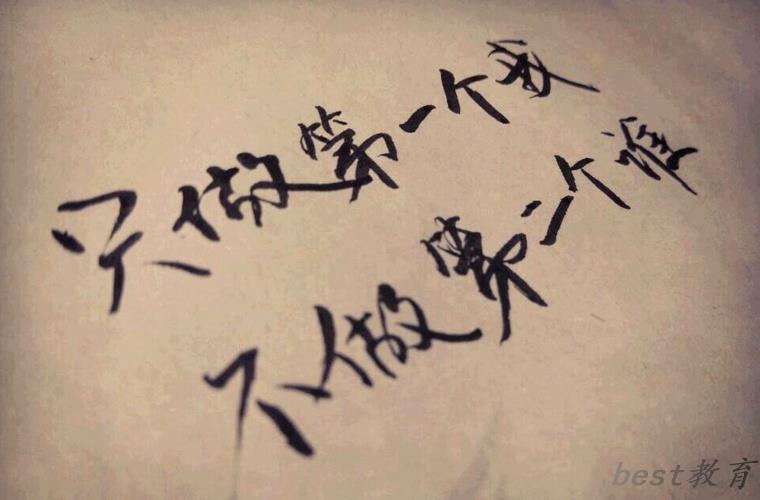 只做第一个我
不做第二个谁
best教育